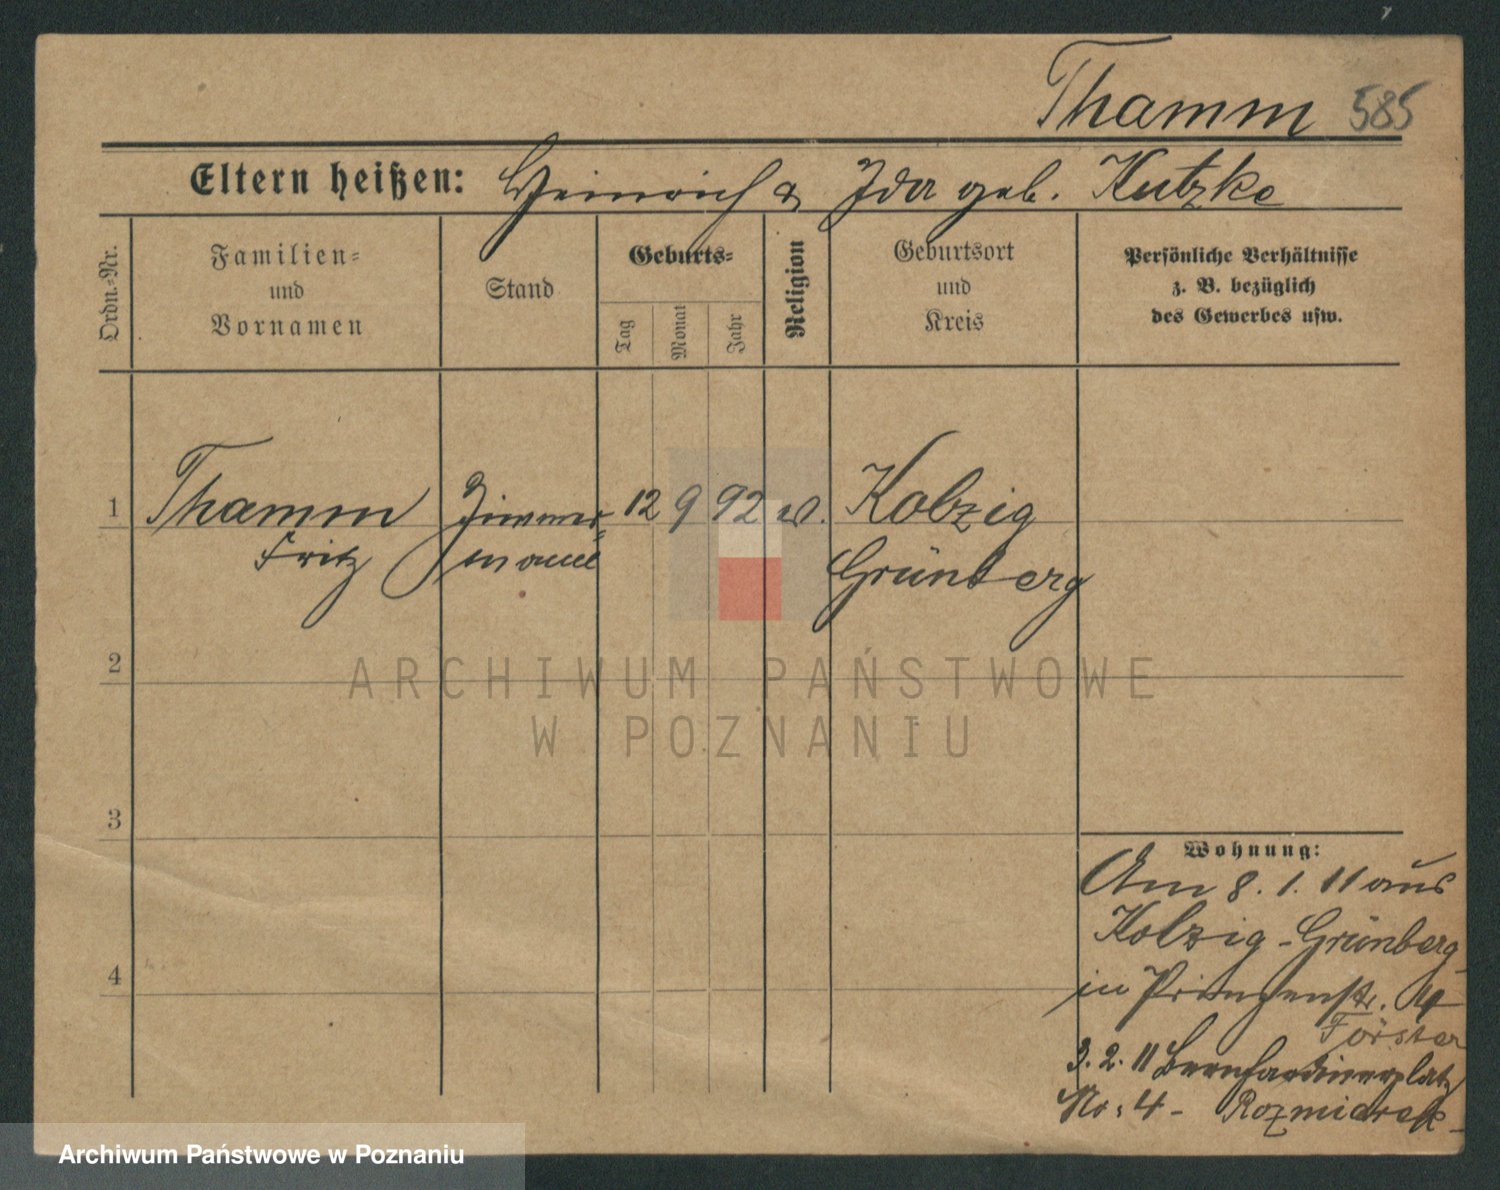 Thamm 585
Eltern heißen: Heinrich & Ida geb. Kutzke
Ordn.-Nr.
Familien-
und
Vornamen
Stand
Geburts-
Tag
Monat
Jahr
Religion
Geburtsort
und
Kreis
Persönliche Verhältnisse
z. B. bezüglich
des Gewerbes usw.
1 Thamm Zimmer- 12 9 92 Kolzig
Fritz mann Grünberg
2
ARCHIWUM PAŃSTWOWE
W POZNANIU
3
Wohnung:
Am 8. 1. 11 aus
Kolzig-Grünberg
4
in Prinzenstr.
Förster
3. 2. 11 Bernhardinerplatz
No: 4 - Rozmiarek
Archiwum Państwowe w Poznaniu